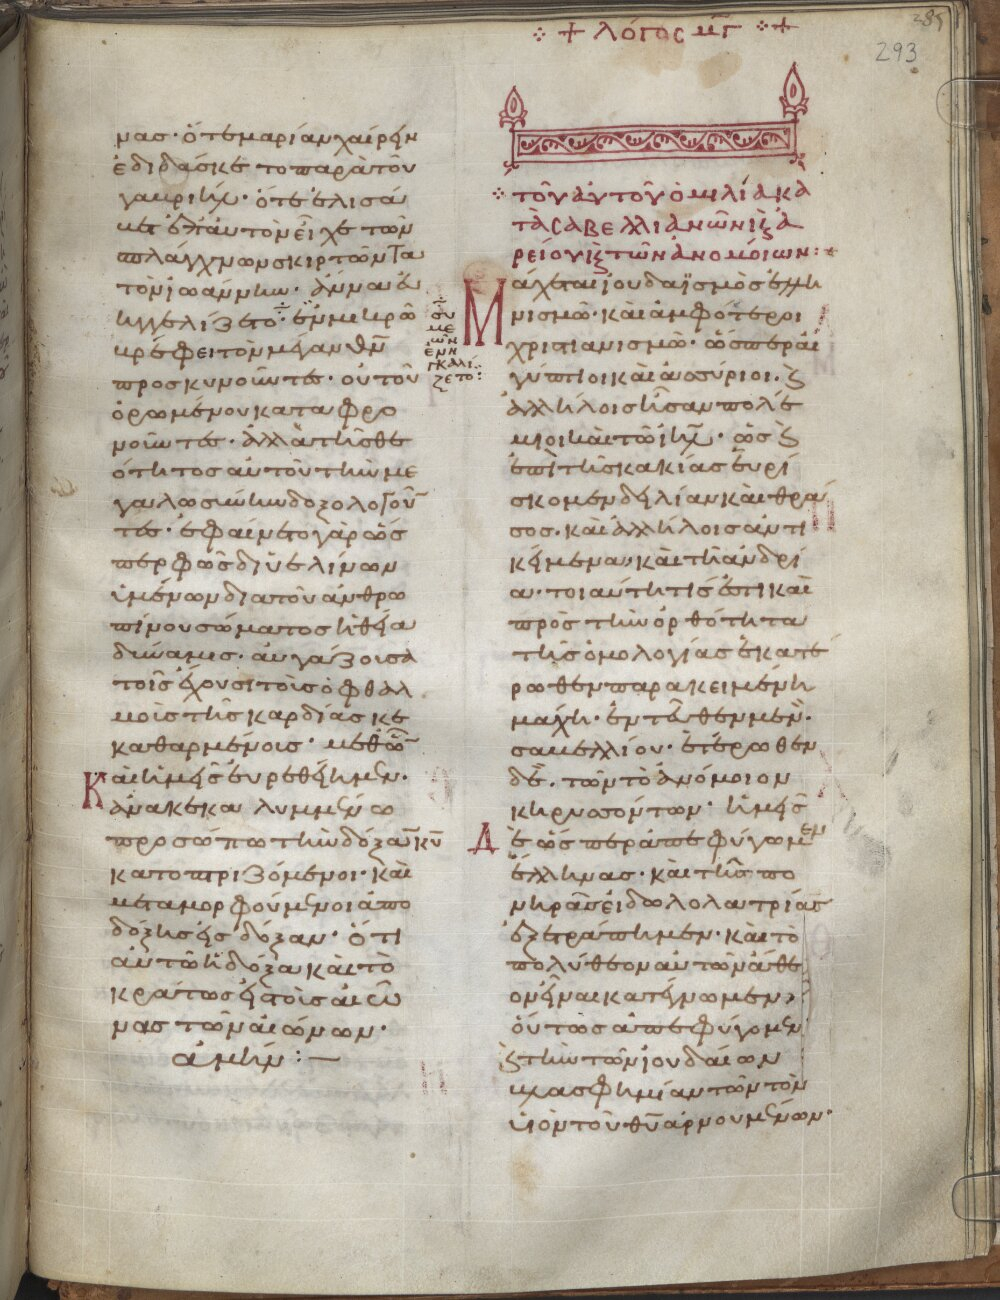 λόγος μγ
285
293
μας· ὅτε μαρία χαίρειν
ἐδιδάσκετο παρὰ τοῦ
γαβριήλ· ὅτε ἐλισά
βετ ἐπ' αὐτὸν εἶχε τῶν
σπλάγχνων σκιρτῶντα
τὸν ἰωάννην· ἄννα εὐ
ηγγελίζετο· ἐν μικρῷ
βρέφει τὸν μέγαν θν
προσκυνοῦντες· οὐ τοῦ
ὁρωμένου καταφρο
νοῦντες· ἀλλὰ τῆς θε
ότητος αὐτοῦ τὴν με
γαλωσύνην δοξολογοῦν
τες· ἐφαίνετο γὰρ ὥς
περ φῶς δι' ὑελίνων
ὑμένων διὰ τοῦ ἀνθρω
πίνου σώματος ἡ θεία
δύναμις· αὐγάζουσα
τοῖς ἔχουσι τοὺς ὀφθαλ
μοὺς τῆς καρδίας κε
καθαρμένους· μεθ' ὧν
Καὶ ἡμεῖς εὑρεθείημεν·
ἀνακεκαλυμμένω
προσώπω τὴν δόξαν κυ
κατοπτριζόμενοι· καὶ
μεταμορφούμενοι ἀπὸ
δόξης εἰς δόξαν· ὅτι
αὐτῶ ἡ δόξα καὶ τὸ
κράτος εἰς τοὺς αἰῶ
νας τῶν αἰώνων·
ἀμήν:
συ
με
ὼν
ἐνη
γκαλί
ζετο:
τοῦ αὐτοῦ ὁμιλία κα
τὰ σαβελλιανῶν κ ἀ
ρείου κ τῶν ἀνομοίων:
Μάχεται ἰουδαϊσμὸς ἑλλη
νισμῶ· καὶ ἀμφότεροι
χριστιανισμῶ· ὥσπερ αἰ
γύπτιοι καὶ ἀσσύριοι· κ
ἀλλήλοις ἦσαν πολέ
μιοι καὶ τῶ ιηλ· ὡς κ
ἐπὶ τῆς κακίας εὑρί
σκομεν δειλίαν καὶ θρά
σος· καὶ ἀλλήλοις ἀντι
κείμενα· καὶ τῆ ἀνδρί
α· τοιαύτη τίς ἐστι καὶ
πρὸς τὴν ὀρθότητα
τῆς ὁμολογίας ἑκατέ
ρωθεν παρακειμένη
μάχη· ἐντεῦθεν μὲν·
σαβελλίου· ἑτέρωθεν
δὲ· τῶν τὸ ἀνόμοιον
κηρυσσόντων· ἡμεῖς
Δὲ ὥσπερ ἀπεφύγωμεν
ἕλληνας· καὶ τῆς πο
νηρᾶς εἰδωλολατρίας
ἐξετράπημεν· καὶ τὸ
πολύθεον αὐτῶν ἄθε
ον εἶναι κατείπωμεν·
οὕτως ἀπεφύγομεν
κ τὴν τῶν ἰουδαίων
βλασφημίαν τῶν τὸν
υἱὸν τοῦ θυ ἀρνουμένων·